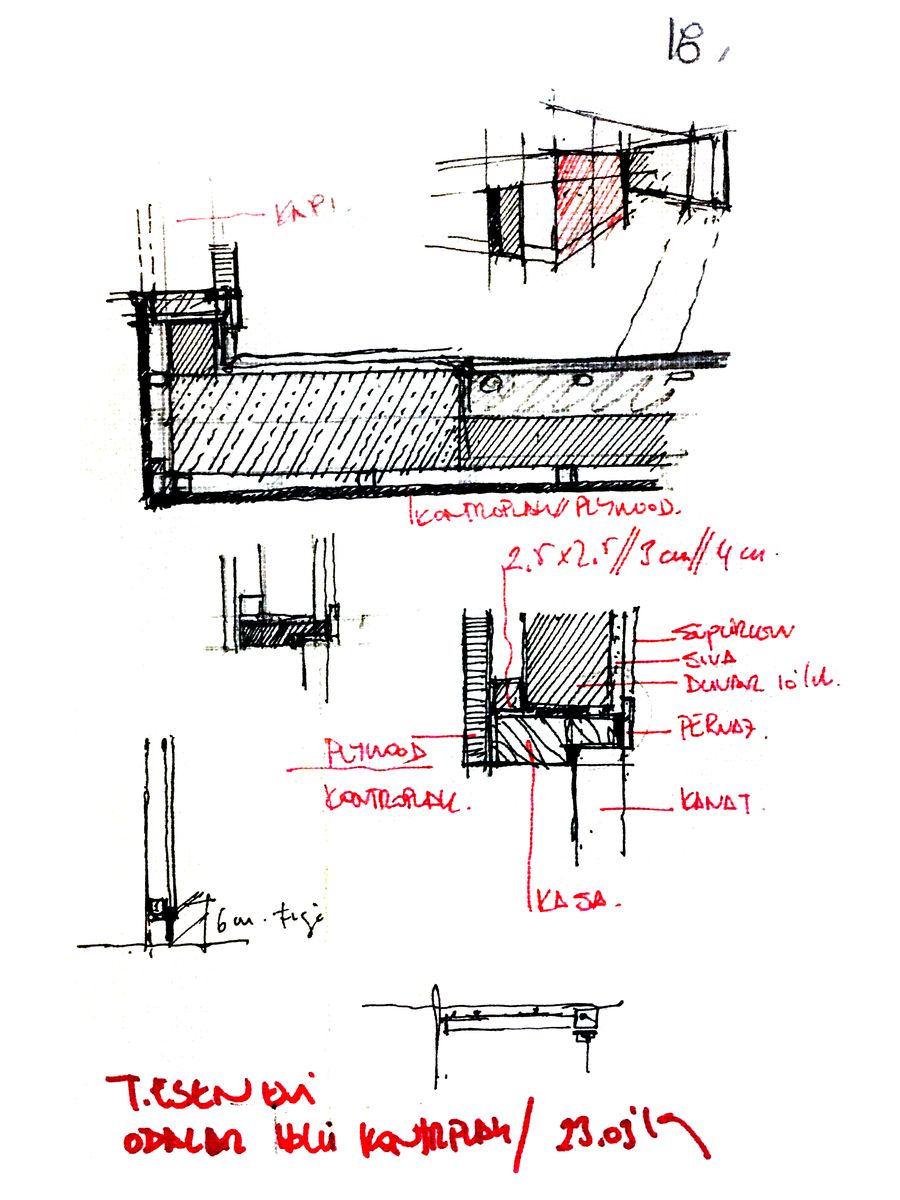 18.
KAPI.
KONTROPLAK // PLYWOOD.
2.5x2.5 // 3 cm // 4 cm.
SÜPÜRGELİK
SIVA
DUVAR 10'luk.
PERVAZ.
PLYWOOD
KONTROPLAK.
KANAT.
KASA.
6 cm.
T.ESEN EVİ
ODALAR HOLÜ KONTRPLAK / 23.03'19